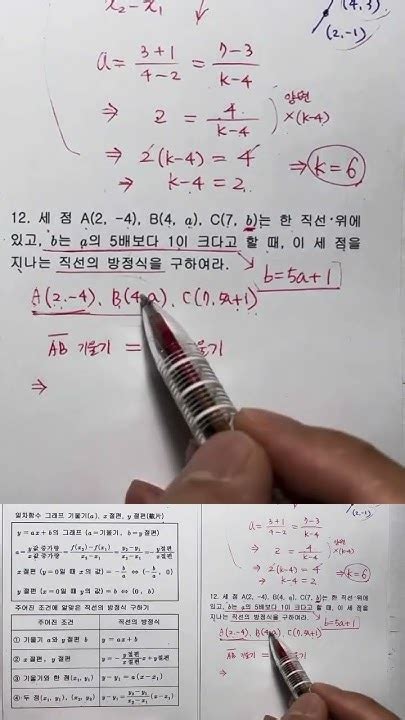 x₂-x₁
(4, 3)
(2,-1)
a = 3+1/4-2 = 7-3/k-4
⇒ 2 = 4/k-4 양변 ×(k-4)
⇒ 2(k-4) = 4 ⇒ k=6
→ k-4 = 2
12. 세 점 A(2, -4), B(4, a), C(7, b)는 한 직선 위에
있고, b는 a의 5배보다 1이 크다고 할 때, 이 세 점을
지나는 직선의 방정식을 구하여라.
b=5a+1
A(2,-4), B(4,a), C(7,5a+1)
AB 기울기 = 울기
⇒
일차함수 그래프 기울기(a), x 절편, y 절편(截片)
y=ax+b의 그래프 (a=기울기, b=y절편)
a = y값 증가량/x값 증가량 = f(x₂)-f(x₁)/x₂-x₁ = y₂-y₁/x₂-x₁ = -y절편/x절편
x절편 (y=0일 때 x의 값) = -b/a ⇔ (-b/a, 0)
y절편 (x=0일 때 y의 값) = b ⇔ (0, b)
주어진 조건에 알맞은 직선의 방정식 구하기
주어진 조건 직선의 방정식
① 기울기 a와 y절편 b y=ax+b
② x절편, y절편 y=-y절편/x절편 x+y절편
③ 기울기와 한 점(x₁, y₁) y-y₁=a(x-x₁)
④ 두 점(x₁, y₁), (x₂, y₂) y-y₁=y₂-y₁/x₂-x₁(x-x₁)
(2,-1)
a = 3+1/4-2 = 7-3/k-4
⇒ 2 = 4/k-4 양변 ×(k-4)
⇒ 2(k-4) = 4 ⇒ k=6
→ k-4 = 2
12. 세 점 A(2, -4), B(4, a), C(7, b)는 한 직선 위에
있고, b는 a의 5배보다 1이 크다고 할 때, 이 세 점을
지나는 직선의 방정식을 구하여라.
b=5a+1
A(2,-4), B(4,a), C(7,5a+1)
AB 기울기 = 울기
⇒